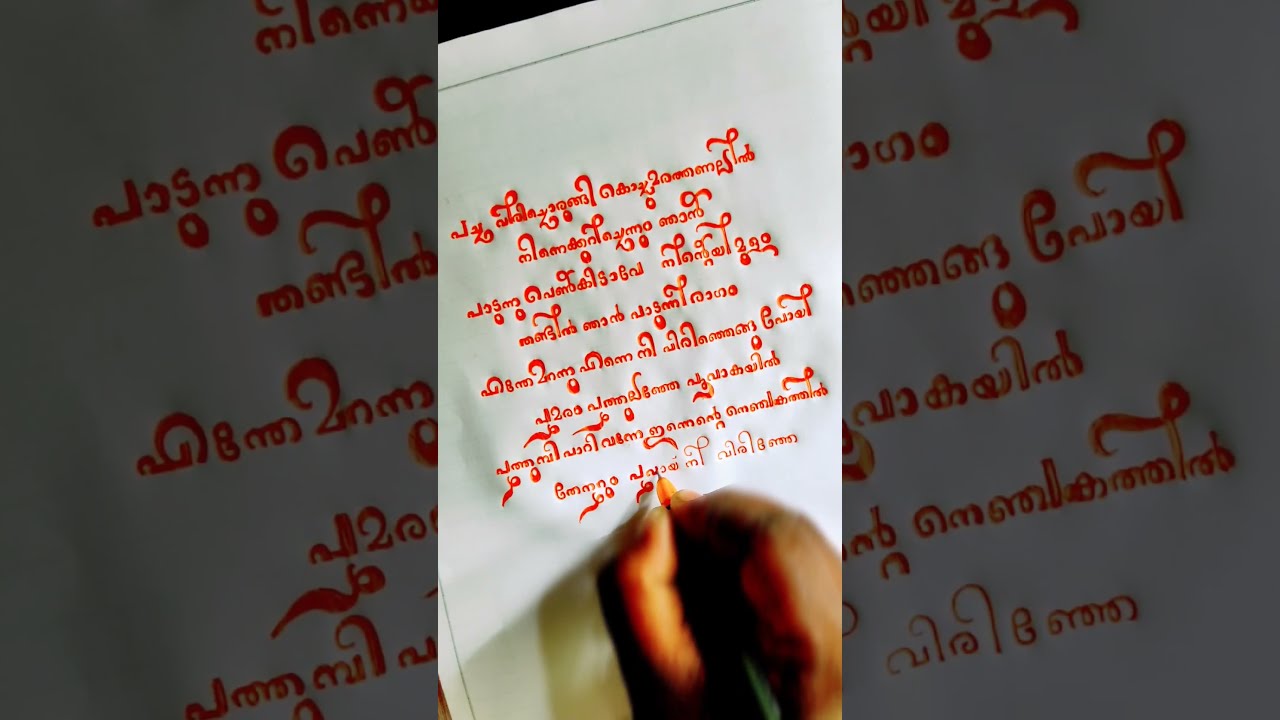 പച്ച വിരിച്ചൊരുങ്ങി കൊച്ചുമരത്തണലിൽ
നിന്നെക്കുറിച്ചെന്നും ഞാൻ
പാടുന്നു പെൺകിടാവേ നിന്റെയീ മുളം
തണ്ടിൽ ഞാൻ പാടുന്നീ രാഗം
എന്തേ മറന്നു എന്നെ നീ പിരിഞ്ഞെങ്ങു പോയി
പൂമരം പൂത്തുലഞ്ഞേ പൂവാകയിൽ
പൂത്തുമ്പി പാറി വന്നേ ഇന്നെന്റെ നെഞ്ചികത്തിൽ
തേനൂറും പൂവായ് നീ വിരിഞ്ഞേ